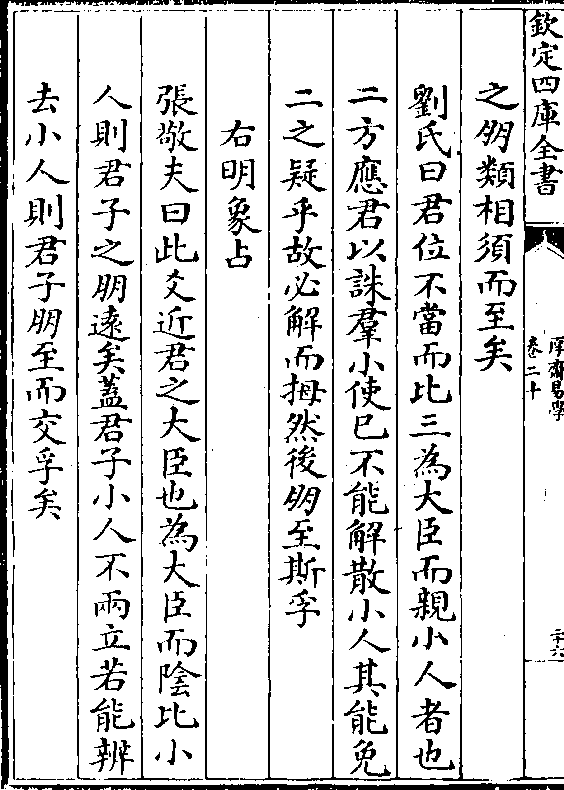 欽定四庫全書
厚齋易學
卷二十
二十六
之朋類相須而至矣
劉氏曰君位不當而比三為大臣而親小人者也
二方應君以誅羣小使已不能解散小人其能免
二之疑乎故必解而拇然後朋至斯孚
右明象占
張敬夫曰此爻近君之大臣也為大臣而陰比小
人則君子之朋遠矣蓋君子小人不兩立若能辨
去小人則君子朋至而交孚矣